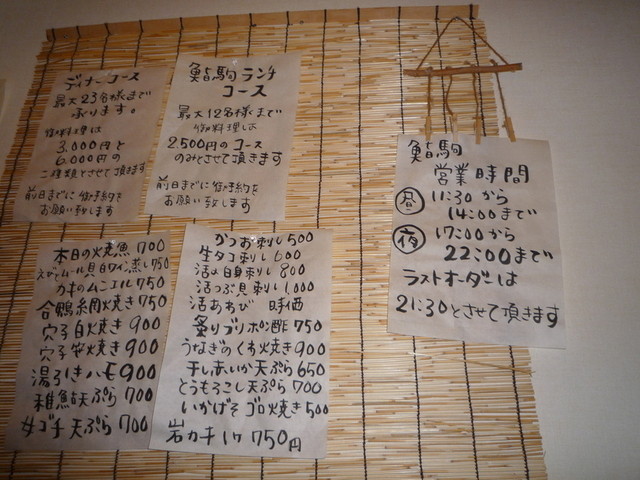 ディナーコース
最大23名様まで
承ります。
御料理は
3,000円と
6,000円の
二種類とさせて頂きます
前日までに御予約を
お願い致します
鮨駒ランチ
コース
最大12名様まで
御料理は
2,500円のコース
のみとさせて頂きます
前日までに御予約を
お願い致します
鮨駒
営業時間
昼 11:30から
14:00まで
夜 17:00から
22:00まで
ラストオーダーは
21:30とさせて頂きます
本日の火焼魚 700
えび・ムール貝白ワイン蒸し 750
かものムニエル 750
合鴨網火焼き 750
穴子白火焼き 900
穴子笹火焼き 900
湯引きハモ 900
稚鮎天ぷら 700
女ゴチ天ぷら 700
かつお刺し 500
生タコ刺し 600
活〆白身刺し 800
活つぶ貝刺し 1,000
活あわび 時価
炙りブリポン酢 750
うなぎのくわ火焼き 900
干しあいか天ぷら 650
とうもろこし天ぷら 700
いかげそゴロ火焼き 500
岩カキ1ケ 750円